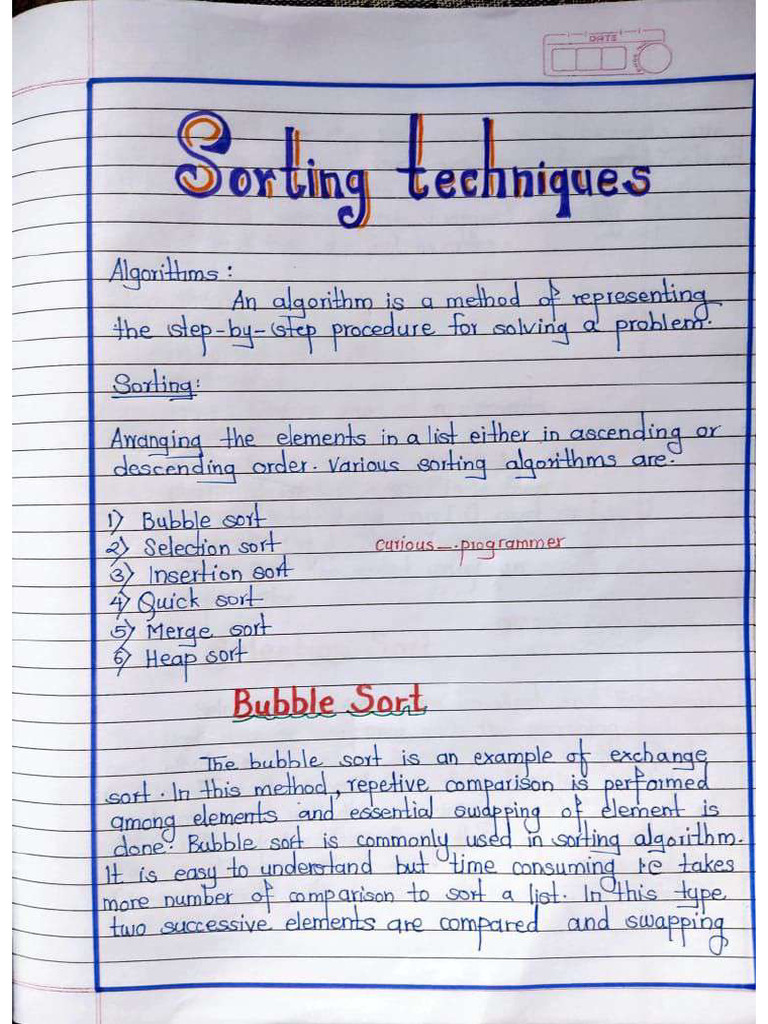 DATE
Sorting techniques
Algorithms:
An algorithm is a method of representing
the step-by-step procedure for solving a problem.
Sorting:
Arranging the elements in a list either in ascending or
descending order. Various sorting algorithms are.
1) Bubble sort
2) Selection sort
curious_.programmer
3) Insertion sort
4) Quick sort
5) Merge sort
6) Heap sort
Bubble Sort
The bubble sort is an example of exchange
sort. In this method, repetive comparison is performed
among elements and essential swapping of element is
done. Bubble sort is commonly used in sorting algorithm.
It is easy to understand but time consuming ie takes
more number of comparison to sort a list. In this type
two successive elements are compared and swapping